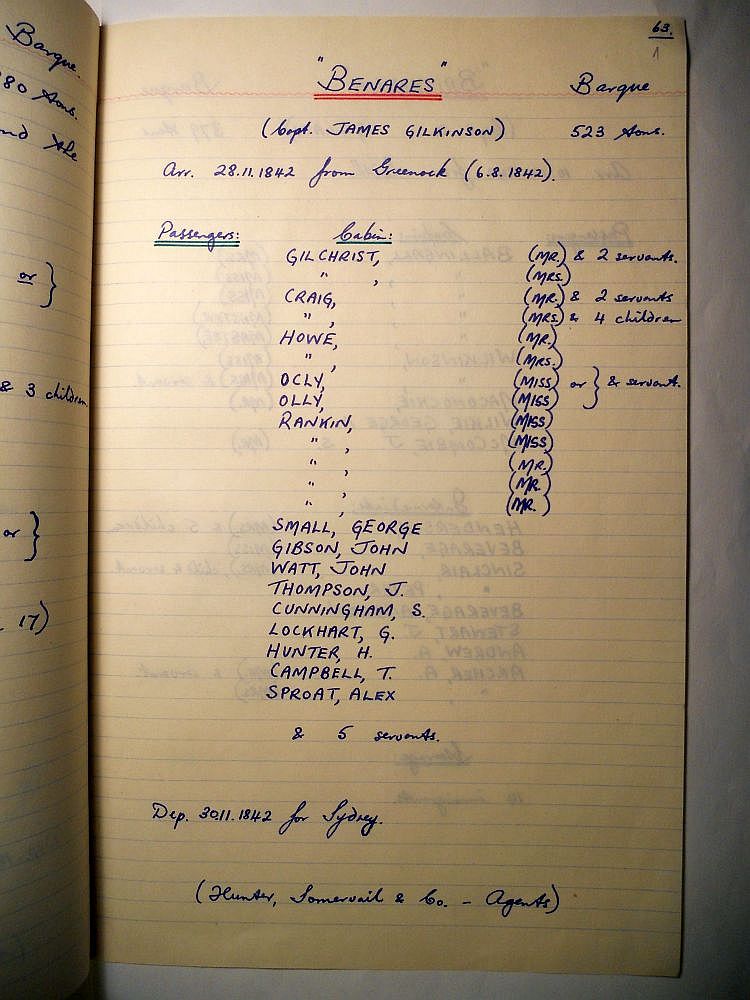 Barque.
80 tons.
nd the
or }
& 3 children
or }
17)
63.
1
"BENARES" Barque
(Capt. JAMES GILKINSON) 523 tons.
Arr. 28.11.1842 from Greenock (6.8.1842).
Passengers: Cabin:
GILCHRIST, (MR.) & 2 servants.
" , (MRS.)
CRAIG, (MR.) & 2 servants
" , (MRS.) & 4 children
HOWE, (MR.)
" , (MRS.)
OCLY, (MISS) or } & servant.
OLLY, (MISS)
RANKIN, (MISS)
" , (MISS)
" , (MR.)
" , (MR.)
" , (MR.)
SMALL, GEORGE
GIBSON, JOHN
WATT, JOHN
THOMPSON, J.
CUNNINGHAM, S.
LOCKHART, G.
HUNTER, H.
CAMPBELL, T.
SPROAT, ALEX
& 5 servants.
Dep. 30.11.1842 for Sydney.
(Hunter, Somervail & Co. - Agents)